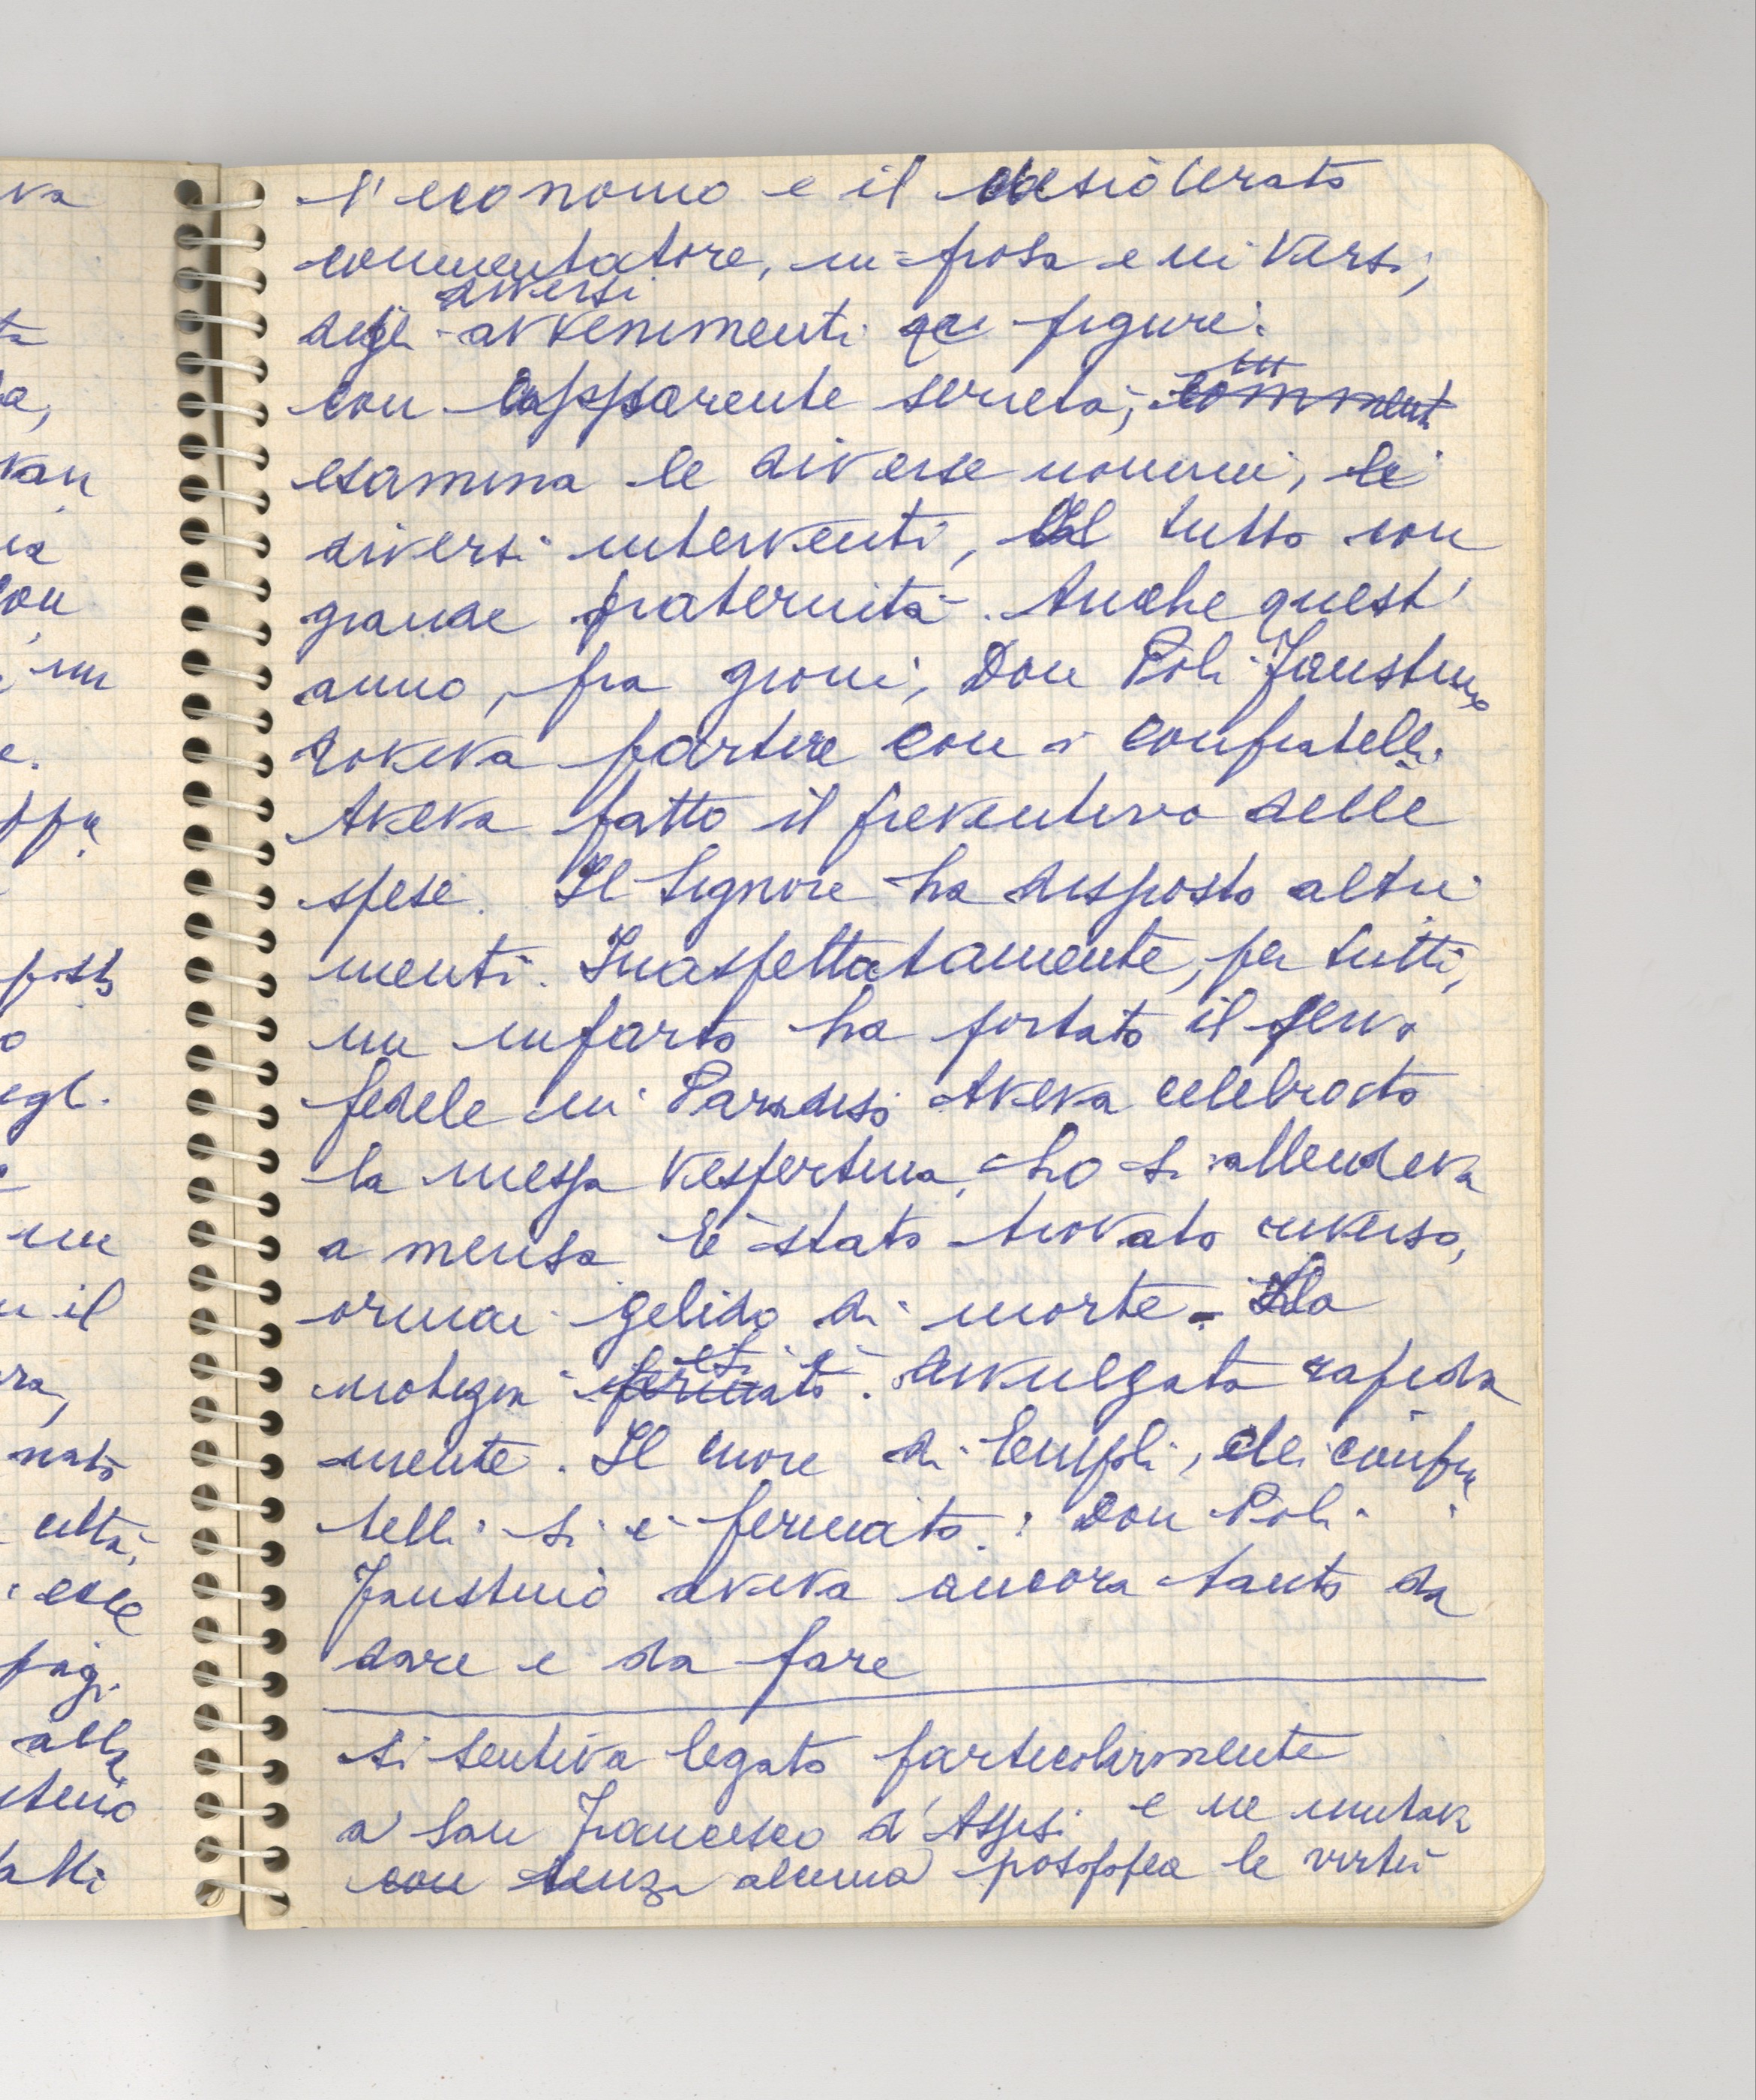 l'economo e il desiderato
commentatore, in prosa e in versi,
degli diversi avvenimenti e figure.
con apparente serietà,
esamina le diverse nomine, i
diversi interventi, il tutto con
grande fraternità. Anche quest'
anno, fra giorni, Don Poli Faustino
doveva partire con i confratelli.
Aveva fatto il preventivo delle
spese. Il Signore ha disposto altri
menti. Inaspettatamente, per tutti,
un infarto ha portato il servo
fedele in Paradiso. Aveva celebrato
la messa vespertina, lo si attendeva
a mensa. È stato trovato riverso,
ormai gelido di morte. La
notizia si è divulgata rapida
mente. Il cuore di Empoli, dei confra
telli si è fermato: Don Poli
Faustino aveva ancora tanto da
dare e da fare
si sentiva legato particolarmente
a San Francesco d'Assisi e ne imitava
senza alcuna posoppea le virtù